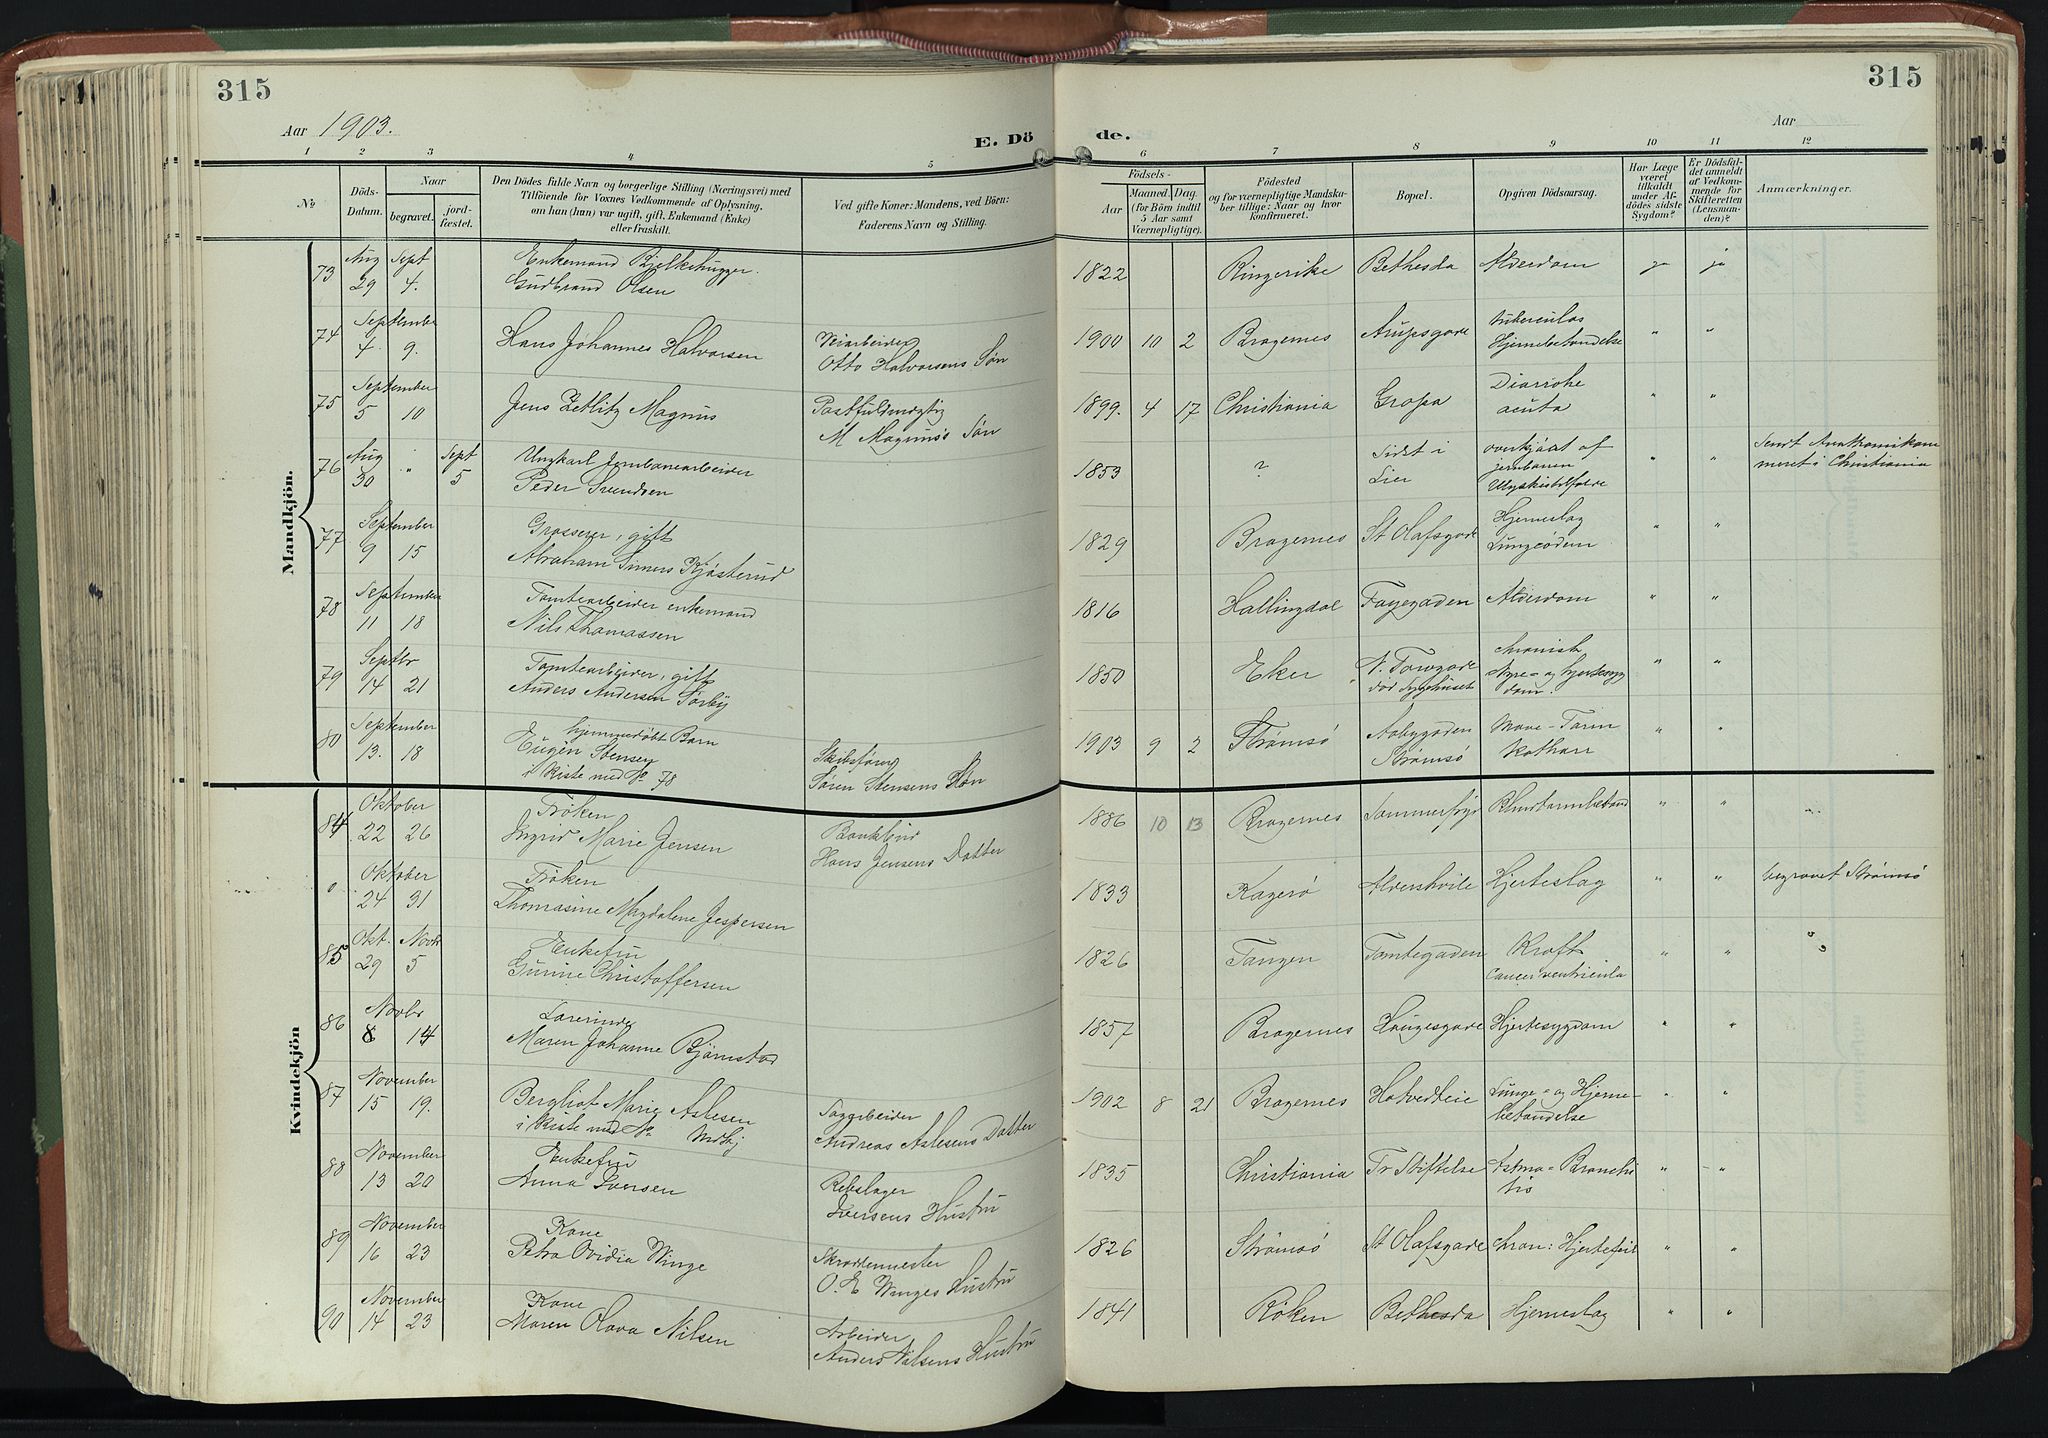 315
315
Aar 1903.
E. Dö
de.
Aar
1 2 3 4 5 6 7 8 9 10 11 12
No
Döds-Datum.
Naar
begravet.
jord-fæstet.
Den Dödes fulde Navn og borgerlige Stilling (Næringsvei) med
Tilföiende for Voxnes Vedkommende af Oplysning,
om han (hun) var ugift, gift, Enkemand (Enke)
eller fraskilt.
Ved gifte Koner: Mandens, ved Börn:
Faderens Navn og Stilling.
Födsels-
Aar
Maaned Dag
(for Börn indtil
5 Aar samt
Værnepligtige).
Födested
og for værnepligtige Mandska-
ber tillige: Naar og hvor
konfirmeret.
Bopæl.
Opgiven Dödsaarsag.
Har Læge
været
tilkaldt
under Af-
dödes sidste
Sygdom?
Er Dödsfal-
det anmeldt
af Vedkom-
mende for
Skifteretten
(Lensman-
den)?
Anmærkninger.
Mandkjön.
73 Aug 29 Sept 4. Enkemand Bjelkehugger. Gudbrand Olsen 1822 Ringerike Bethesda Alderdom ja ja
74 September 4 9. Hans Johannes Halvorsen Veiarbeider Otto Halvorsens Søn 1900 10 2 Bragernes Arupsgade tuberculøs Hjernebetændelse " "
75 September 5 10 Jens Zetlitz Magnus Postfuldmægtig M Magnus's Søn 1899. 4 17 Christiania Gropa Diarrohe acuta " "
76 Aug 30 " Sept 5 Ungkarl Jernbanearbeider Peder Svendsen 1853 ? Sidst i Lier overkjørt af jernbanen Ulykkestilfælde " " Sendt kammeret i Christiania
77 September 9 15 Grosserer, gift Abraham Kjøsterud 1829 Bragernes St Olafsgade Hjerneslag Lungeødem " "
78 September 11 18 Tomtearbeider enkemand Nils Thomassen 1816 Hallingdal Fogegaden Alderdom " "
79 Septbr 14 21 Tomtearbeider, gift Anders Andersen Sørby 1850 Eker N. Torvgade død Sygehuset chronisk Nyre- og hjertesygdom. " "
80 September 13. 18 hjemmedøbt Barn Eugen Stensen i Kiste med No 78 Skibsfører Søren Stensens Søn 1903 9 2 Strømsø Aabygaden Strømsø Mave-Tarm Katharr " "
Kvindekjön
84 Oktober 22 26 Frøken Ingrid Marie Jensen Hans Jensens Datter 1886 10 13 Bragernes Sommerfryd Blindtarmbetænd " "
" Oktober 24 31 Frøken Thomasine Magdalene Jespersen 1833 Kagerø Aldershvile Hjerteslag " " begravet Strømsø
85 Okt. 29 Novbr 5 Enkefru Gurine Christoffersen 1826 Tangen Tomtegaden Kræft Cancer ventricula " "
86 Novbr 8 14 Lærerinde Maren Johanne Bjørnstad 1857 Bragernes Haugesgade Hjertesygdom " "
87 November 15 19. Bergliot Marie Aslesen i Kiste med No Sagarbeider Andreas Aslesens Datter 1902 8 21 Bragernes Hotvedtveie Lunge- og Hjerne-betændelse " "
88 November 13 20 Enkefru Anna Iversen Rebslager Iversens Hustru 1835 Christiania Tr Stiftelse Astma-Bronchitis " "
89 November 16 23 Kone Petra Ovidia Winge Skræddermester O. E Winges Hustru 1826 Strømsø St Olafsgade chron: Hjertefeil " "
90 November 14 23 Kone Maren Olava Nilsen Arbeider Anders Nilsens Hustru 1841 Røken Bethesda Hjerneslag " "